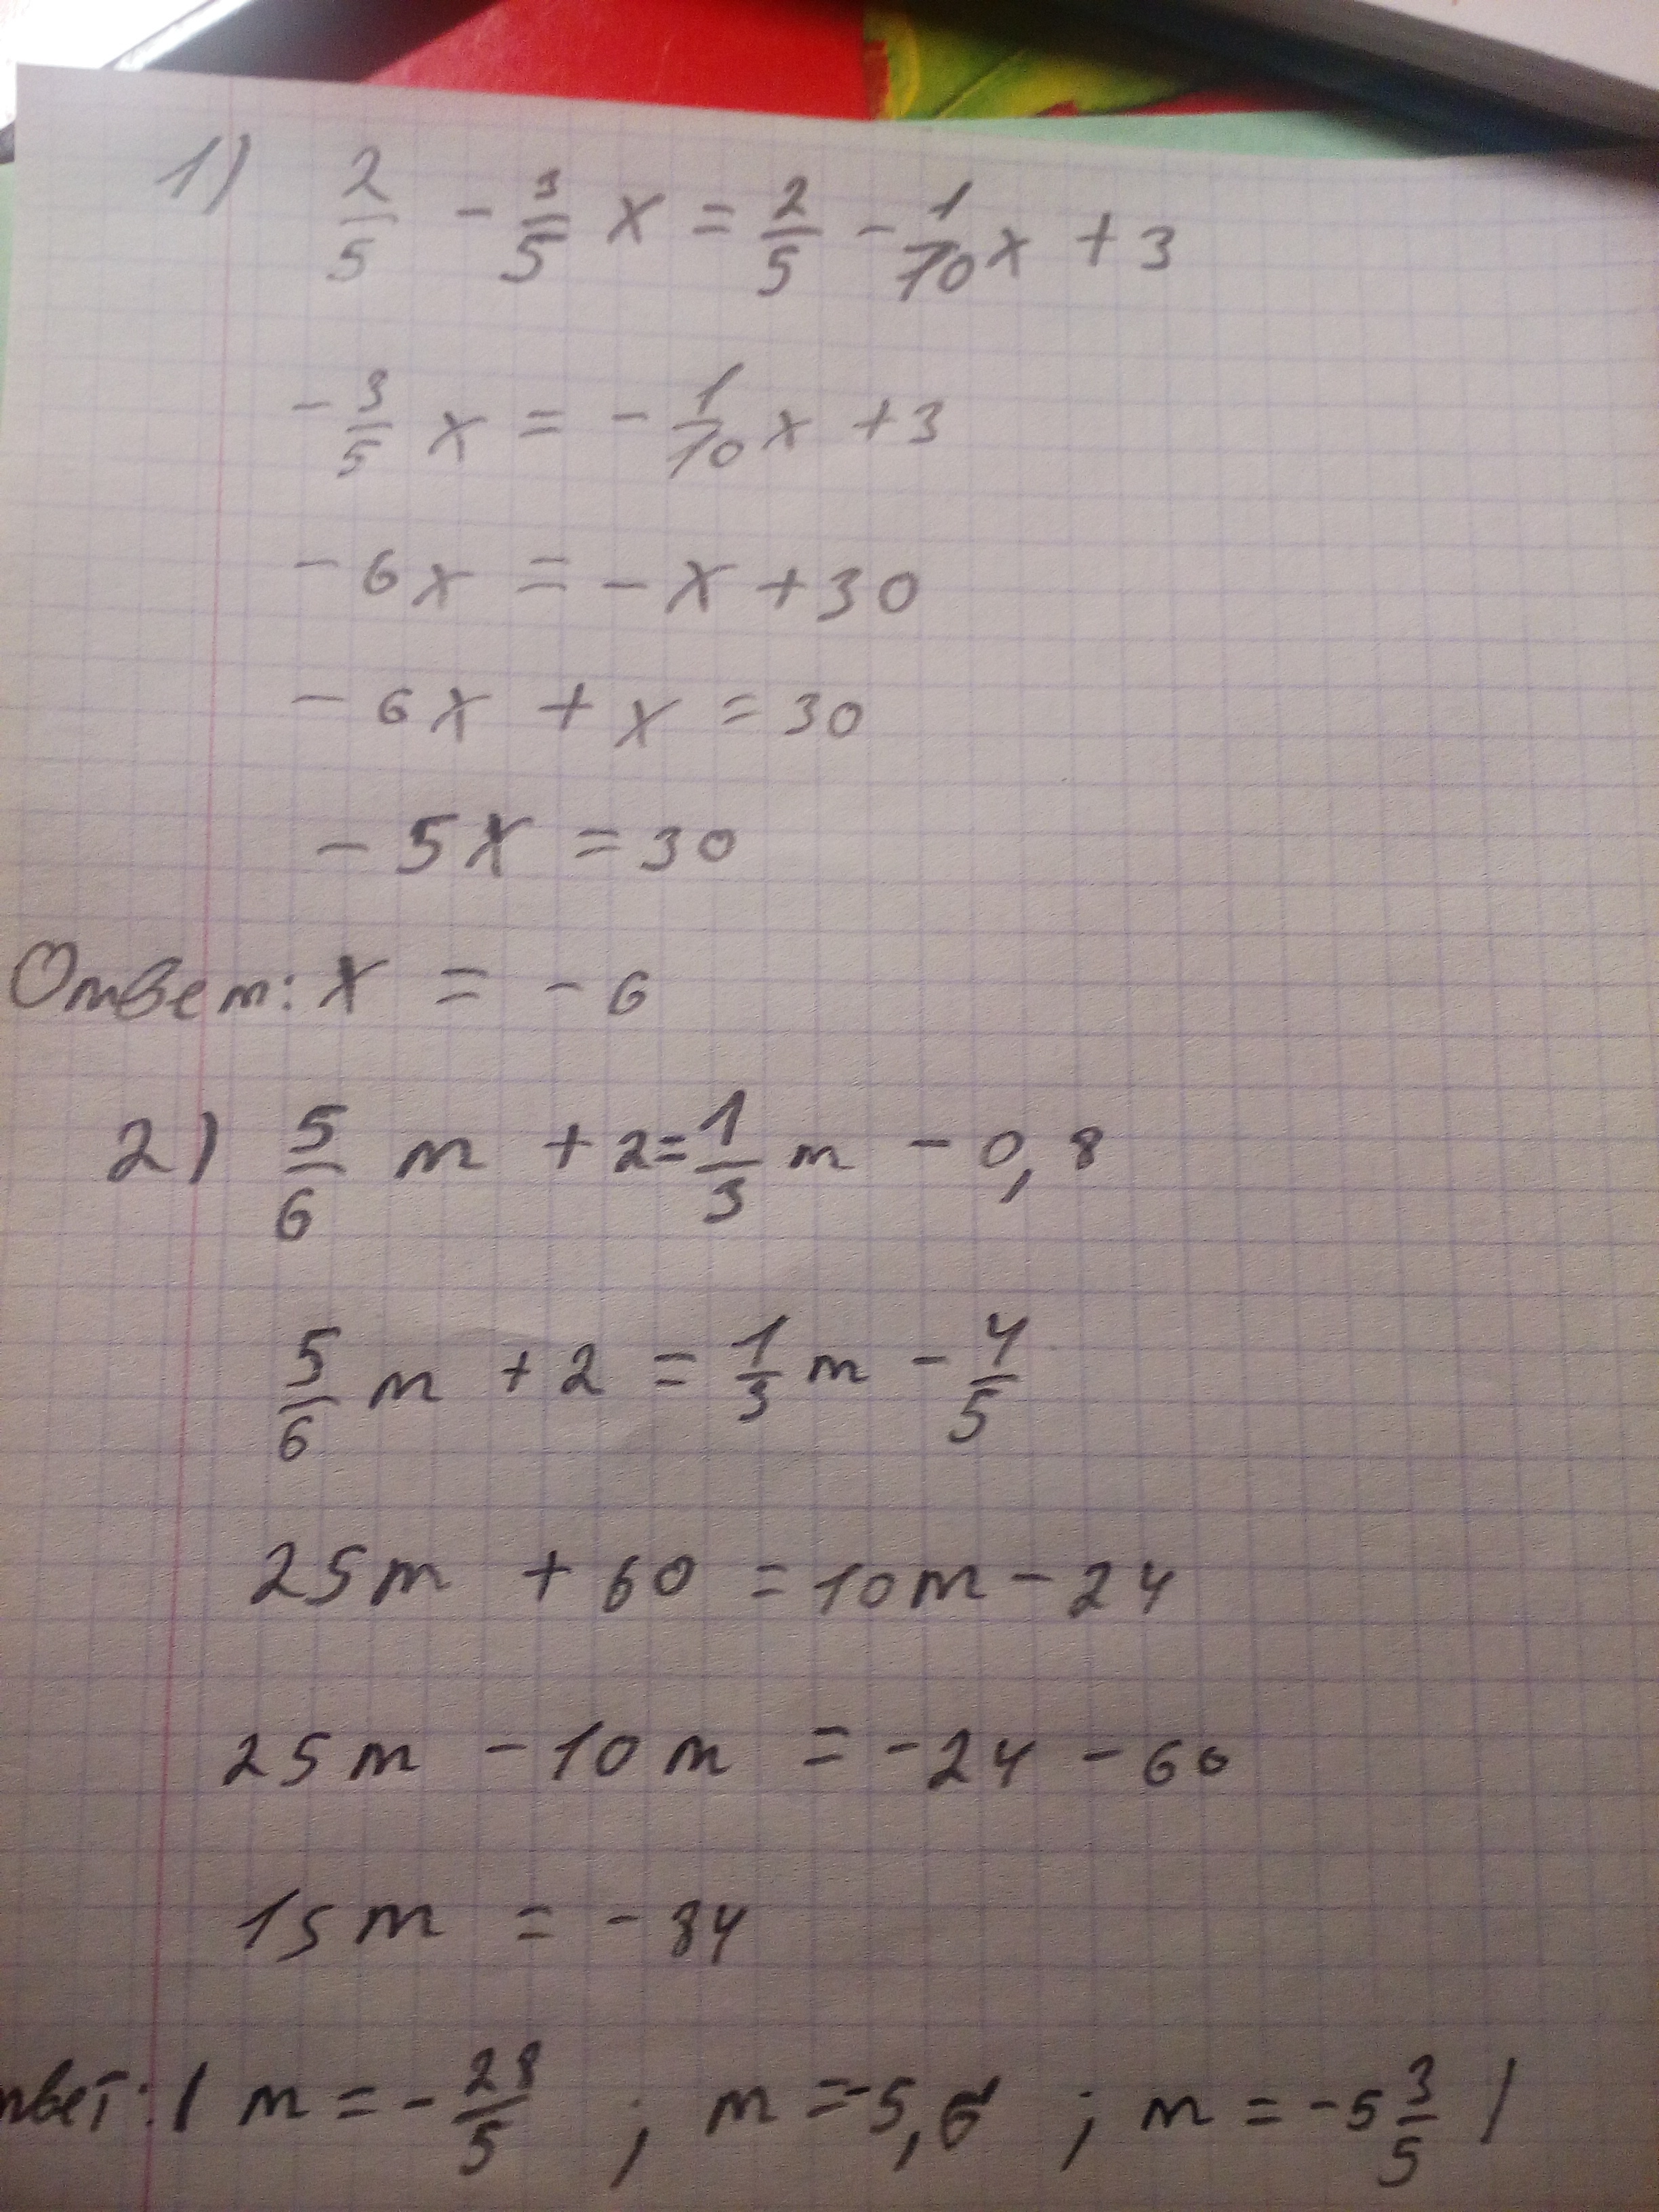 1) 2/5 - 3/5 x = 2/5 - 1/10 x + 3
- 3/5 x = - 1/10 x + 3
- 6x = - x + 30
- 6x + x = 30
- 5x = 30
Ответ: x = - 6
2) 5/6 m + 2 = 1/3 m - 0,8
5/6 m + 2 = 1/3 m - 4/5
25m + 60 = 10m - 24
25m - 10m = - 24 - 60
15m = - 84
твет: / m = - 28/5 ; m = -5,6 ; m = -5 3/5 /